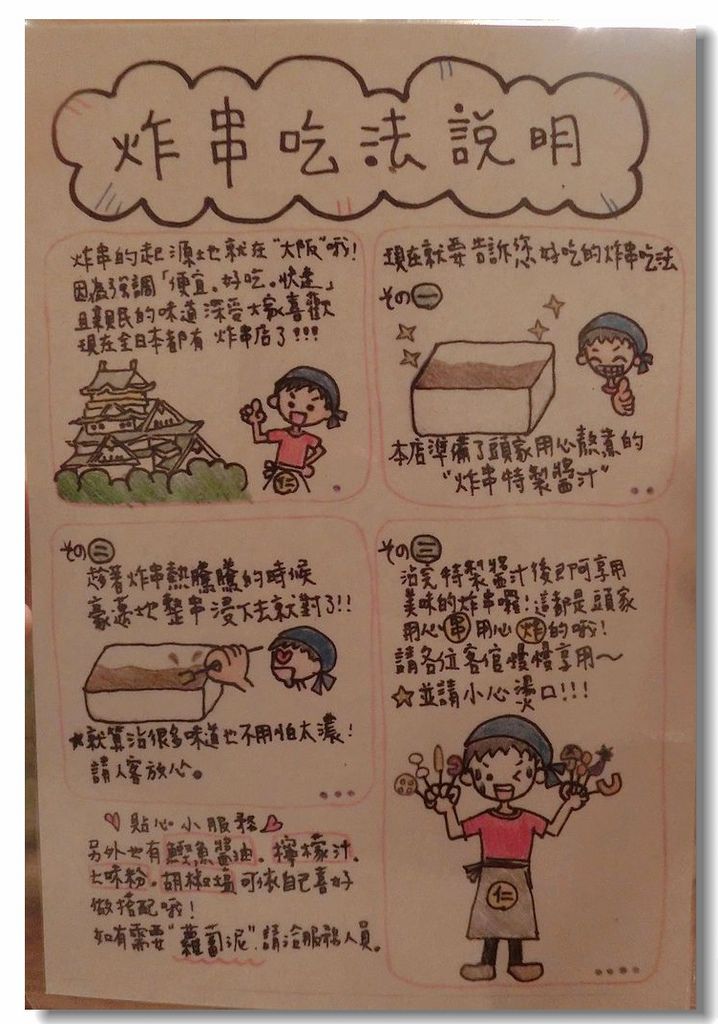 炸串吃法説明
炸串的起源地就在"大阪"哦!
因為強調「便宜。好吃。快速」
且親民的味道深受大家喜歡
現在全日本都有炸串店了!!!
仁
現在就要告訴您好吃的炸串吃法
その一
本店準備了頭家用心熬煮的
"炸串特製醬汁"
その二
趁著炸串熱騰騰的時候
豪邁地整串浸下去就對了!!
★就算沾很多味道也不用怕太濃!
請人客放心。
その三
沾完特製醬汁後即可享用
美味的炸串囉!這都是頭家
用心串用心炸的哦!
請各位客倌慢慢享用~
☆並請小心燙口!!!
仁
♡貼心小服務♡
另外也有鰹魚醬油。檸檬汁。
七味粉。胡椒塩可依自己喜好
做搭配哦!
如有需要"蘿蔔泥"請洽服務人員。